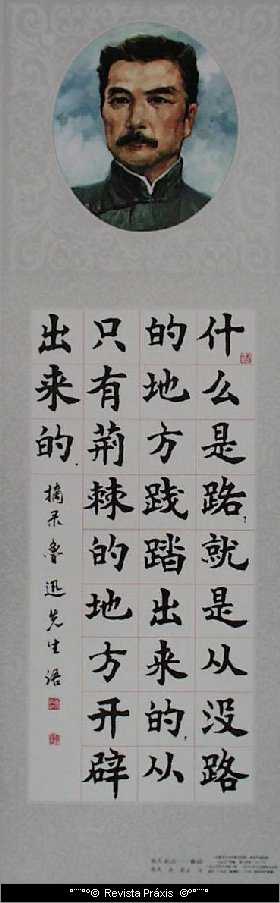 什么是路？就是从没路
的地方践踏出来的，从
只有荆棘的地方开辟
出来的．
摘录鲁迅先生语
© Revista Práxis ©